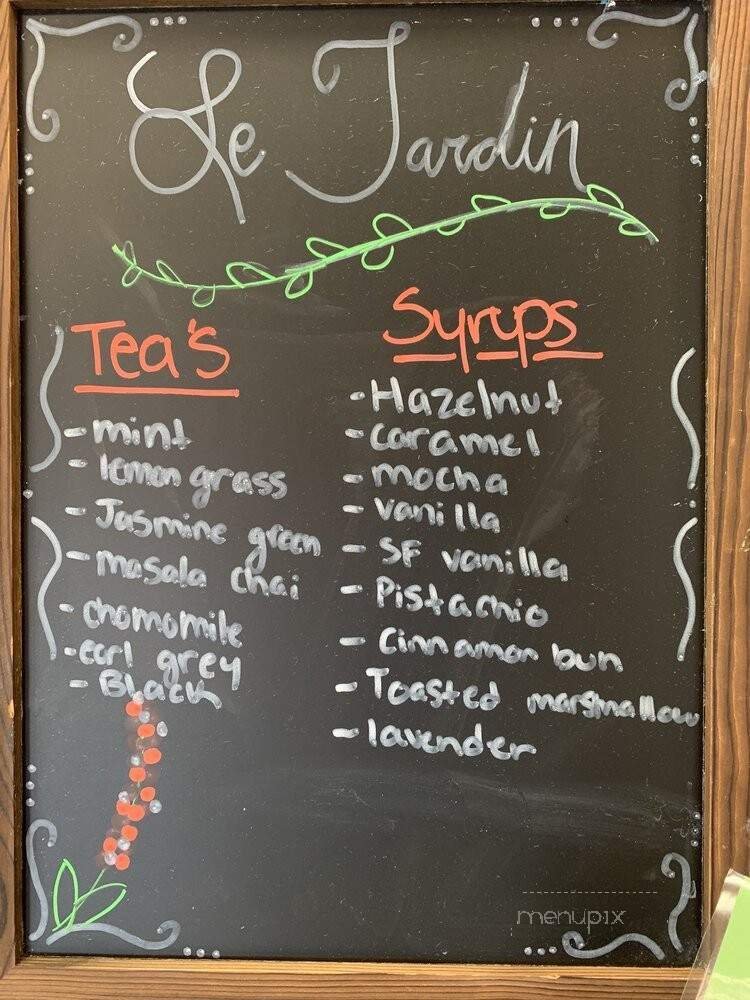 Le Jardin
Tea's
- mint
- lemon grass
- Jasmine green
- masala chai
- chomomile
- earl grey
- Black
Syrups
- Hazelnut
- caramel
- mocha
- vanilla
- SF vanilla
- Pistachio
- Cinnamon bun
- Toasted marshmallow
- lavender
menupix